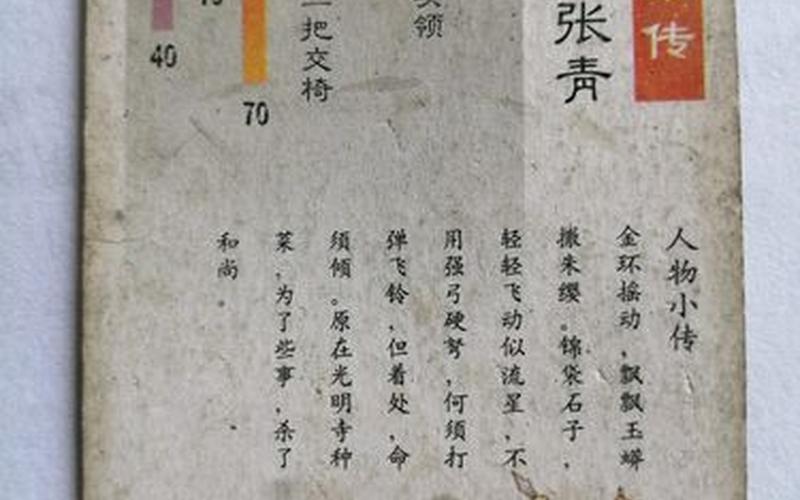 传
张青
领
一把交椅
40
70
人物小传
金环摇动，飘飘玉蟒
撒朱缨。锦袋石子，
轻轻飞动似流星，不
用强弓硬弩，何须打
弹飞铃，但着处，命
须倾。原在光明寺种
菜，为了些事，杀了
和尚。